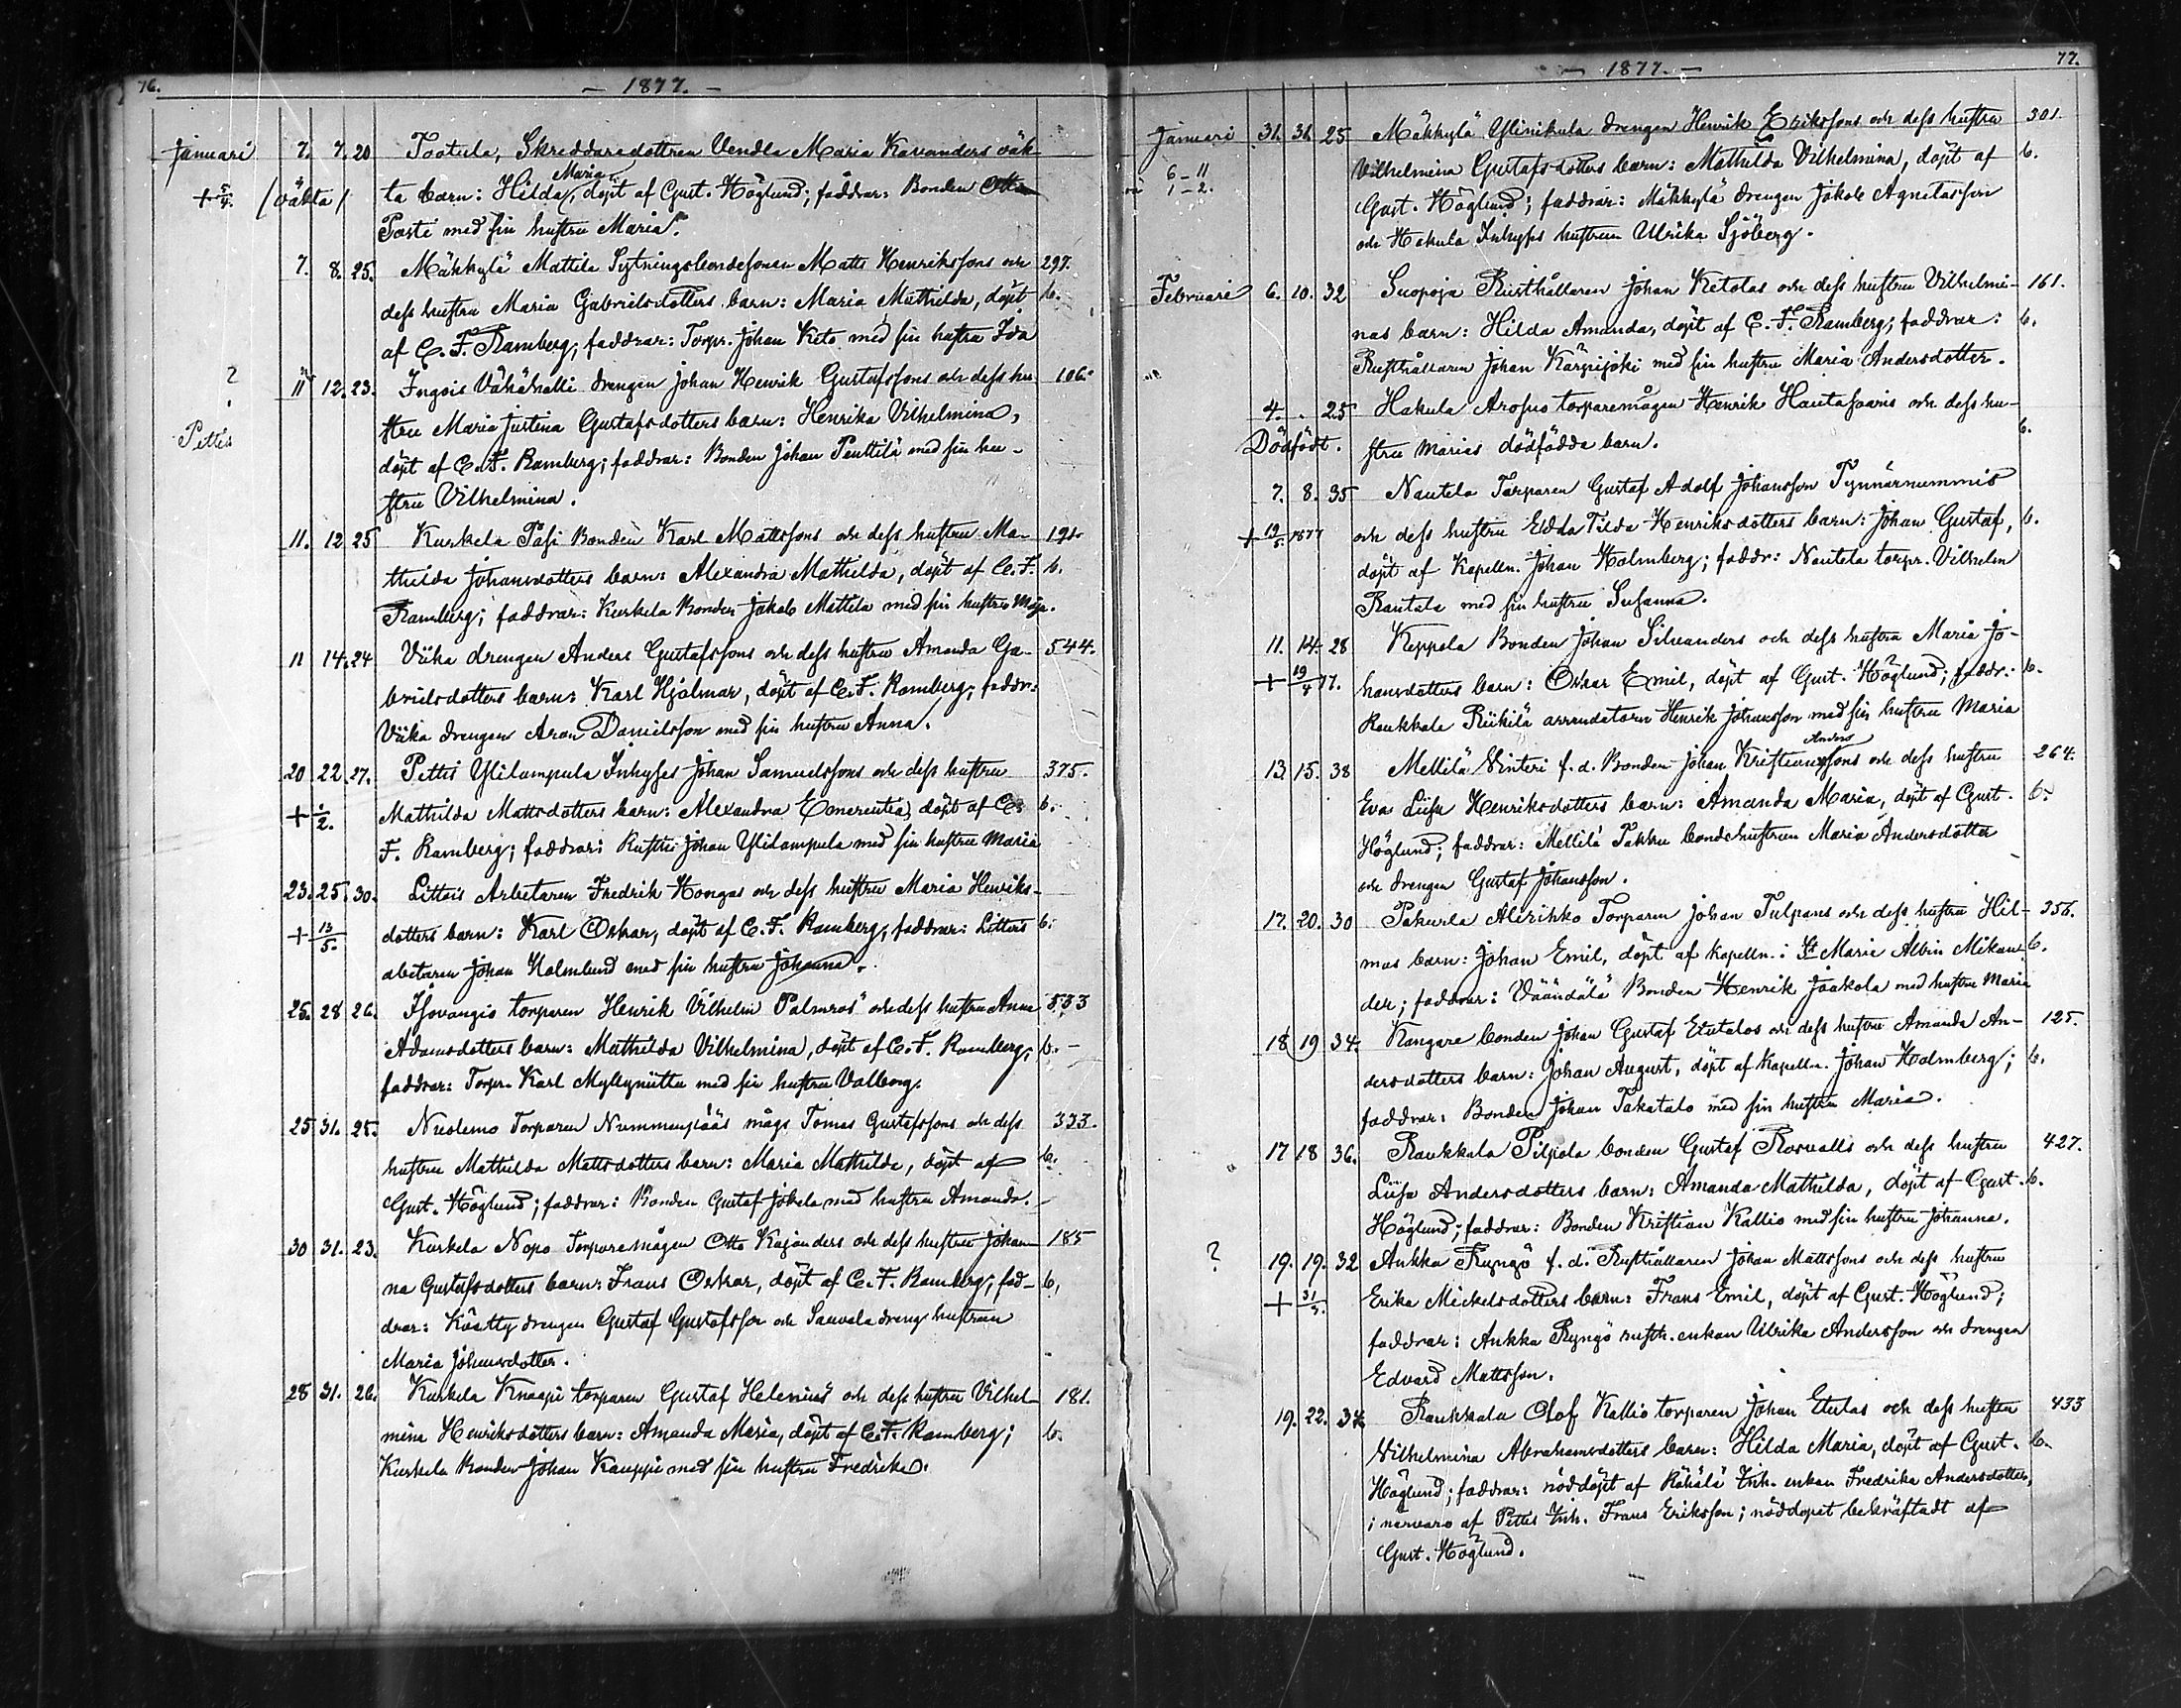 76.
- 1877. -
Januari 7. 7. 20 Tootula, Skreddaredottren Vendla Maria Kavanders oäk-
+ 5/4. /oäkta/ ta barn: Hilda Maria, döpt af Gust. Höglund; faddrar: Bonden
Pasti med sin hustru Maria.
7. 8. 25. Mäkkylä Mattila Sytningsbondesonen Matts Henrikssons och 297.
dess hustru Maria Gabrielsdotters barn: Maria Mathilda, döpt b.
af C. F. Ramberg; faddrar: Torpr. Johan Keto med sin hustru Ida
? 11 12. 23. Ingois Vähähalli drengen Johan Henrik Gustafssons och dess hu- 106.
Pettis stru Maria Justina Gustafsdotters barn: Henrika Vilhelmina,
döpt af C. F. Ramberg; faddrar: Bonden Johan Penttilä med sin hu-
stru Vilhelmina.
11. 12 25 Kurkela Pasi Bonden Karl Mattssons och dess hustru Ma-
thilda Johansdotters barn: Alexandra Mathilda, döpt af C. F. b.
Ramberg; faddrar: Kurkela Bonden Jakob Mattila med sin hustru Maja.
11 14. 24 Viika drengen Anders Gustafssons och dess hustru Amanda Ga- 544.
brielsdotters barn: Karl Hjalmar, döpt af C. F. Ramberg; faddr:
Viika drengen Aron Danielsson med sin hustru Anna.
20 22. 27. Pettis Ylilampula Inhyses Johan Samuelssons och dess hustru 375.
+ 1/2. Mathilda Mattsdotters barn: Alexandra Emerentia, döpt af C. b.
F. Ramberg; faddrar: Rusth. Johan Ylilampula med sin hustru Maria
23. 25. 30. Littois Arbetaren Fredrik Hongas och dess hustru Maria Henriks-
+ 13/5. dotters barn: Karl Oskar, döpt af C. F. Ramberg; faddrar: Littois b.
abetaren Johan Holmlund med sin hustru Johanna.
25. 28 26. Isovangio torparen Henrik Vilhelm Palmros' och dess hustru Anna 533
Adamsdotters barn: Mathilda Vilhelmina, döpt af C. F. Ramberg; b. -
faddrar: Torpr. Karl Myllyniittu med sin hustru Valborg.
25 31. 25. Nuolemo Torparen Nummenpääs mågs Tomas Gustafssons och dess 333.
hustru Mathilda Mattsdotters barn: Maria Mathilda, döpt af b.
Gust. Höglund; faddrar: Bonden Gustaf Jokela med hustru Amanda. -
30 31. 23. Kurkela Nopo Torparemågen Otto Kajanders och dess hustru Johan- 185
na Gustafsdotters barn: Frans Oskar, döpt af C. F. Ramberg; fad- b.
drar: Kåätty drengen Gustaf Gustafsson och Sauvala drengehustrun
Maria Johansdotter.
28 31. 26. Kurkela Knaapi torparen Gustaf Helenius' och dess hustru Vilhel- 181.
mina Henriksdotters barn: Amanda Maria, döpt af C. F. Ramberg; b.
Kurkela Bonden Johan Kauppi med sin hustru Fredrika.
77.
- 1877. -
Januari 31. 31. 25 Mäkkylä Ylinikula drengen Henrik Erikssons och dess hustru 301.
6 - 11 Vilhelmina Gustafsdotters barn: Mathilda Vilhelmina, döpt af b.
1 - 2. Gust. Höglund; faddrar: Mäkkylä drengen Jakob Agnetasson
och Hakula Inhyses hustrun Ulrika Sjöberg.
Februari 6. 10. 32 Suopoja Rusthållaren Johan Ketolas och dess hustru Vilhelmi- 161.
nas barn: Hilda Amanda, döpt af C. F. Ramberg; faddrar: b.
Rusthållaren Johan Kärpijoki med sin hustru Maria Andersdotter.
4. . 25 Hakula Aropus torparemågen Henrik Hautasaaris och dess hu-
Dödfödt. stru Marias dödfödda barn. b.
7. 8. 35 Nautela Torparen Gustaf Adolf Johansson Tynnärnummis
+ 19/5. 1877 och dess hustru Edda Tilda Henriksdotters barn: Johan Gustaf, b.
döpt af Kapelln. Johan Holmberg; faddr: Nautela torpr. Vilhelm
Rautala med sin hustru Susanna.
11. 14. 28 Keppola Bonden Johan Silvanders och dess hustru Maria Jo-
+ 19/4 77. hansdotters barn: Oskar Emil, döpt af Gust. Höglund; faddr: b.
Raukkala Riikilä arrendatorn Henrik Johansson med sin hustru Maria
13. 15. 38 Mellilä Vinteri f. d. Bonden Johan Kristianssons Anders och dess hustru 264.
Eva Liisa Henriksdotters barn: Amanda Maria, döpt af Gust. b.
Höglund; faddrar: Mellilä Takku bondehustrun Maria Andersdotter
och drengen Gustaf Johansson.
17. 20. 30 Pakurla Alirikko Torparen Johan Tulpans och dess hustru Hil- 356.
mas barn: Johan Emil, döpt af Kapelln. i St Marie Albin Mikan- b.
der; faddrar: Väändälä Bonden Henrik Jaakola med hustru Maria
18 19 34. Kangare bonden Johan Gustaf Etutalos och dess hustru Amanda An- 125.
dersdotters barn: Johan August, döpt af Kapelln. Johan Holmberg; b.
faddrar: Bonden Johan Takatalo med sin hustru Maria.
17 18 36. Raukkala Pilpola bonden Gustaf Rosvalls och dess hustru 427.
Liisa Andersdotters barn: Amanda Mathilda, döpt af Gust. b.
Höglund; faddrar: Bonden Kristian Kallio med sin hustru Johanna.
? 19. 19. 32 Aukka Ryngö f. d. Rusthållaren Johan Mattssons och dess hustru
+ 31/ Erika Mickelsdotters barn: Frans Emil, döpt af Gust. Höglund;
faddrar: Aukka Ryngö rusth. enkan Ulrika Andersson och drengen
Edvard Mattsson.
19. 22. 34 Raukkala Olof Kallio torparen Johan Etulas och dess hustru 433
Vilhelmina Abrahamsdotters barn: Hilda Maria, döpt af Gust. b.
Höglund; faddrar: nöddöpt af Rähälä Inh. enkan Fredrika Andersdotter,
i närvaro af Pettis Inh. Frans Eriksson; nöddopet bekräftadt af
Gust. Höglund.